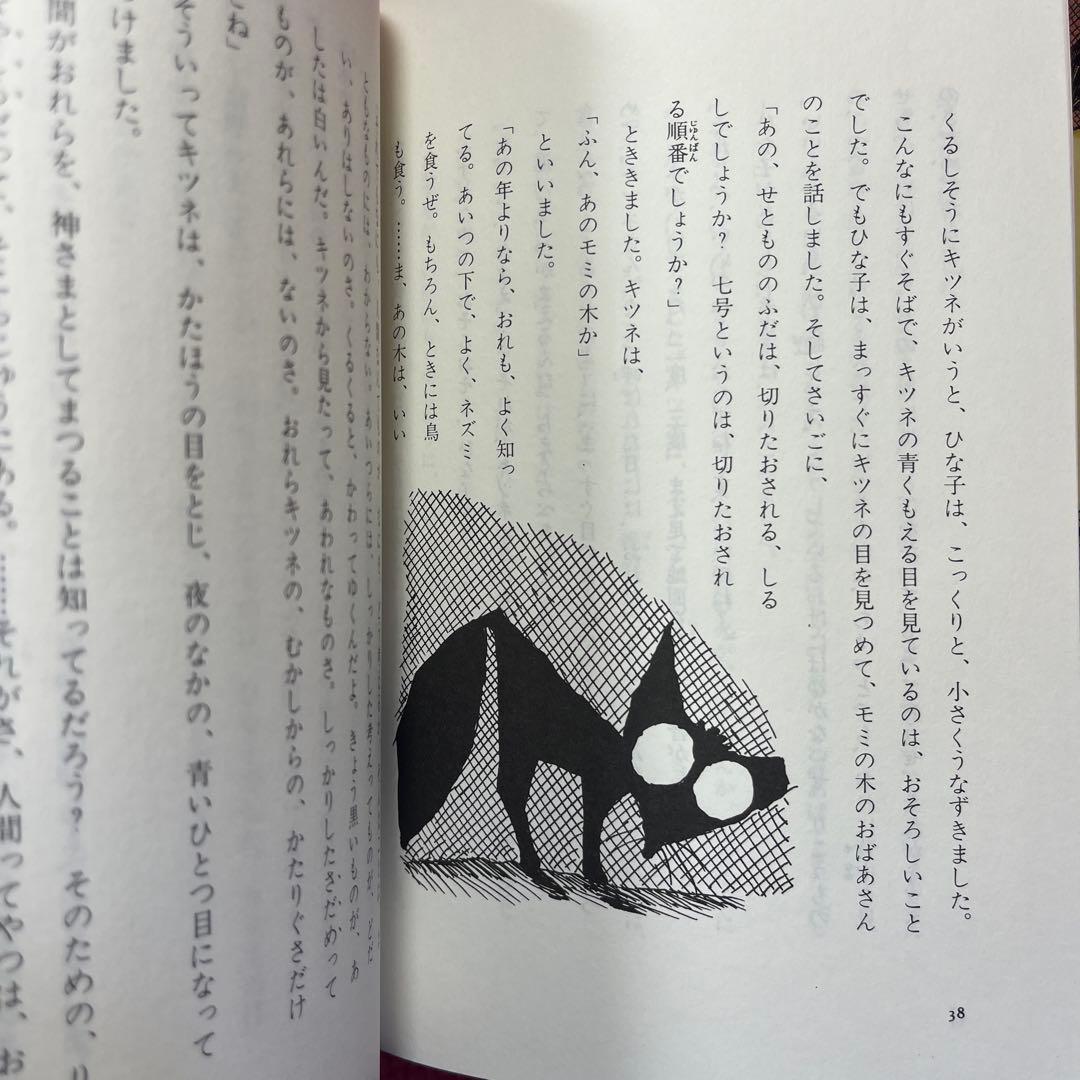 くるしそうにキツネがいうと、ひな子は、こっくりと、小さくうなずきました。
こんなにもすぐそばで、キツネの青くもえる目を見ているのは、おそろしいこと
でした。でもひな子は、まっすぐにキツネの目を見つめて、モミの木のおばあさん
のことを話しました。そしてさいごに、
「あの、せともののふだは、切りたおされる、しる
しでしょうか? 七号というのは、切りたおされ
る順番でしょうか?」
じゅんばん
とききました。キツネは、
「ふん、あのモミの木か」
といいました。
「あの年よりなら、おれも、よく知っ
てる。あいつの下で、よく、ネズミ
を食うぜ。もちろん、ときには鳥
も食う。……ま、あの木は、いい
38
わからない。あいつらには、しっかりした考えってものが、どだ
い、ありはしないのさ。くるくると、かわってゆくんだよ。きょう黒いものが、あ
したは白いんだ。キツネから見たって、あわれなものさ。しっかりしたさだめって
ものが、あれらには、ないのさ。おれらキツネの、むかしからの、かたりぐさだけ
どね」
そういってキツネは、かたほうの目をとじ、夜のなかの、青いひとつ目になって
けました。
間がおれらを、神さまとしてまつることは知ってるだろう? そのための、
にある。……それがさ、人間ってやつは、お